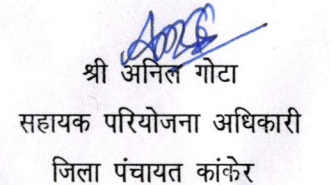 श्री अनिल गोटा
सहायक परियोजना अधिकारी
जिला पंचायत कांकेर